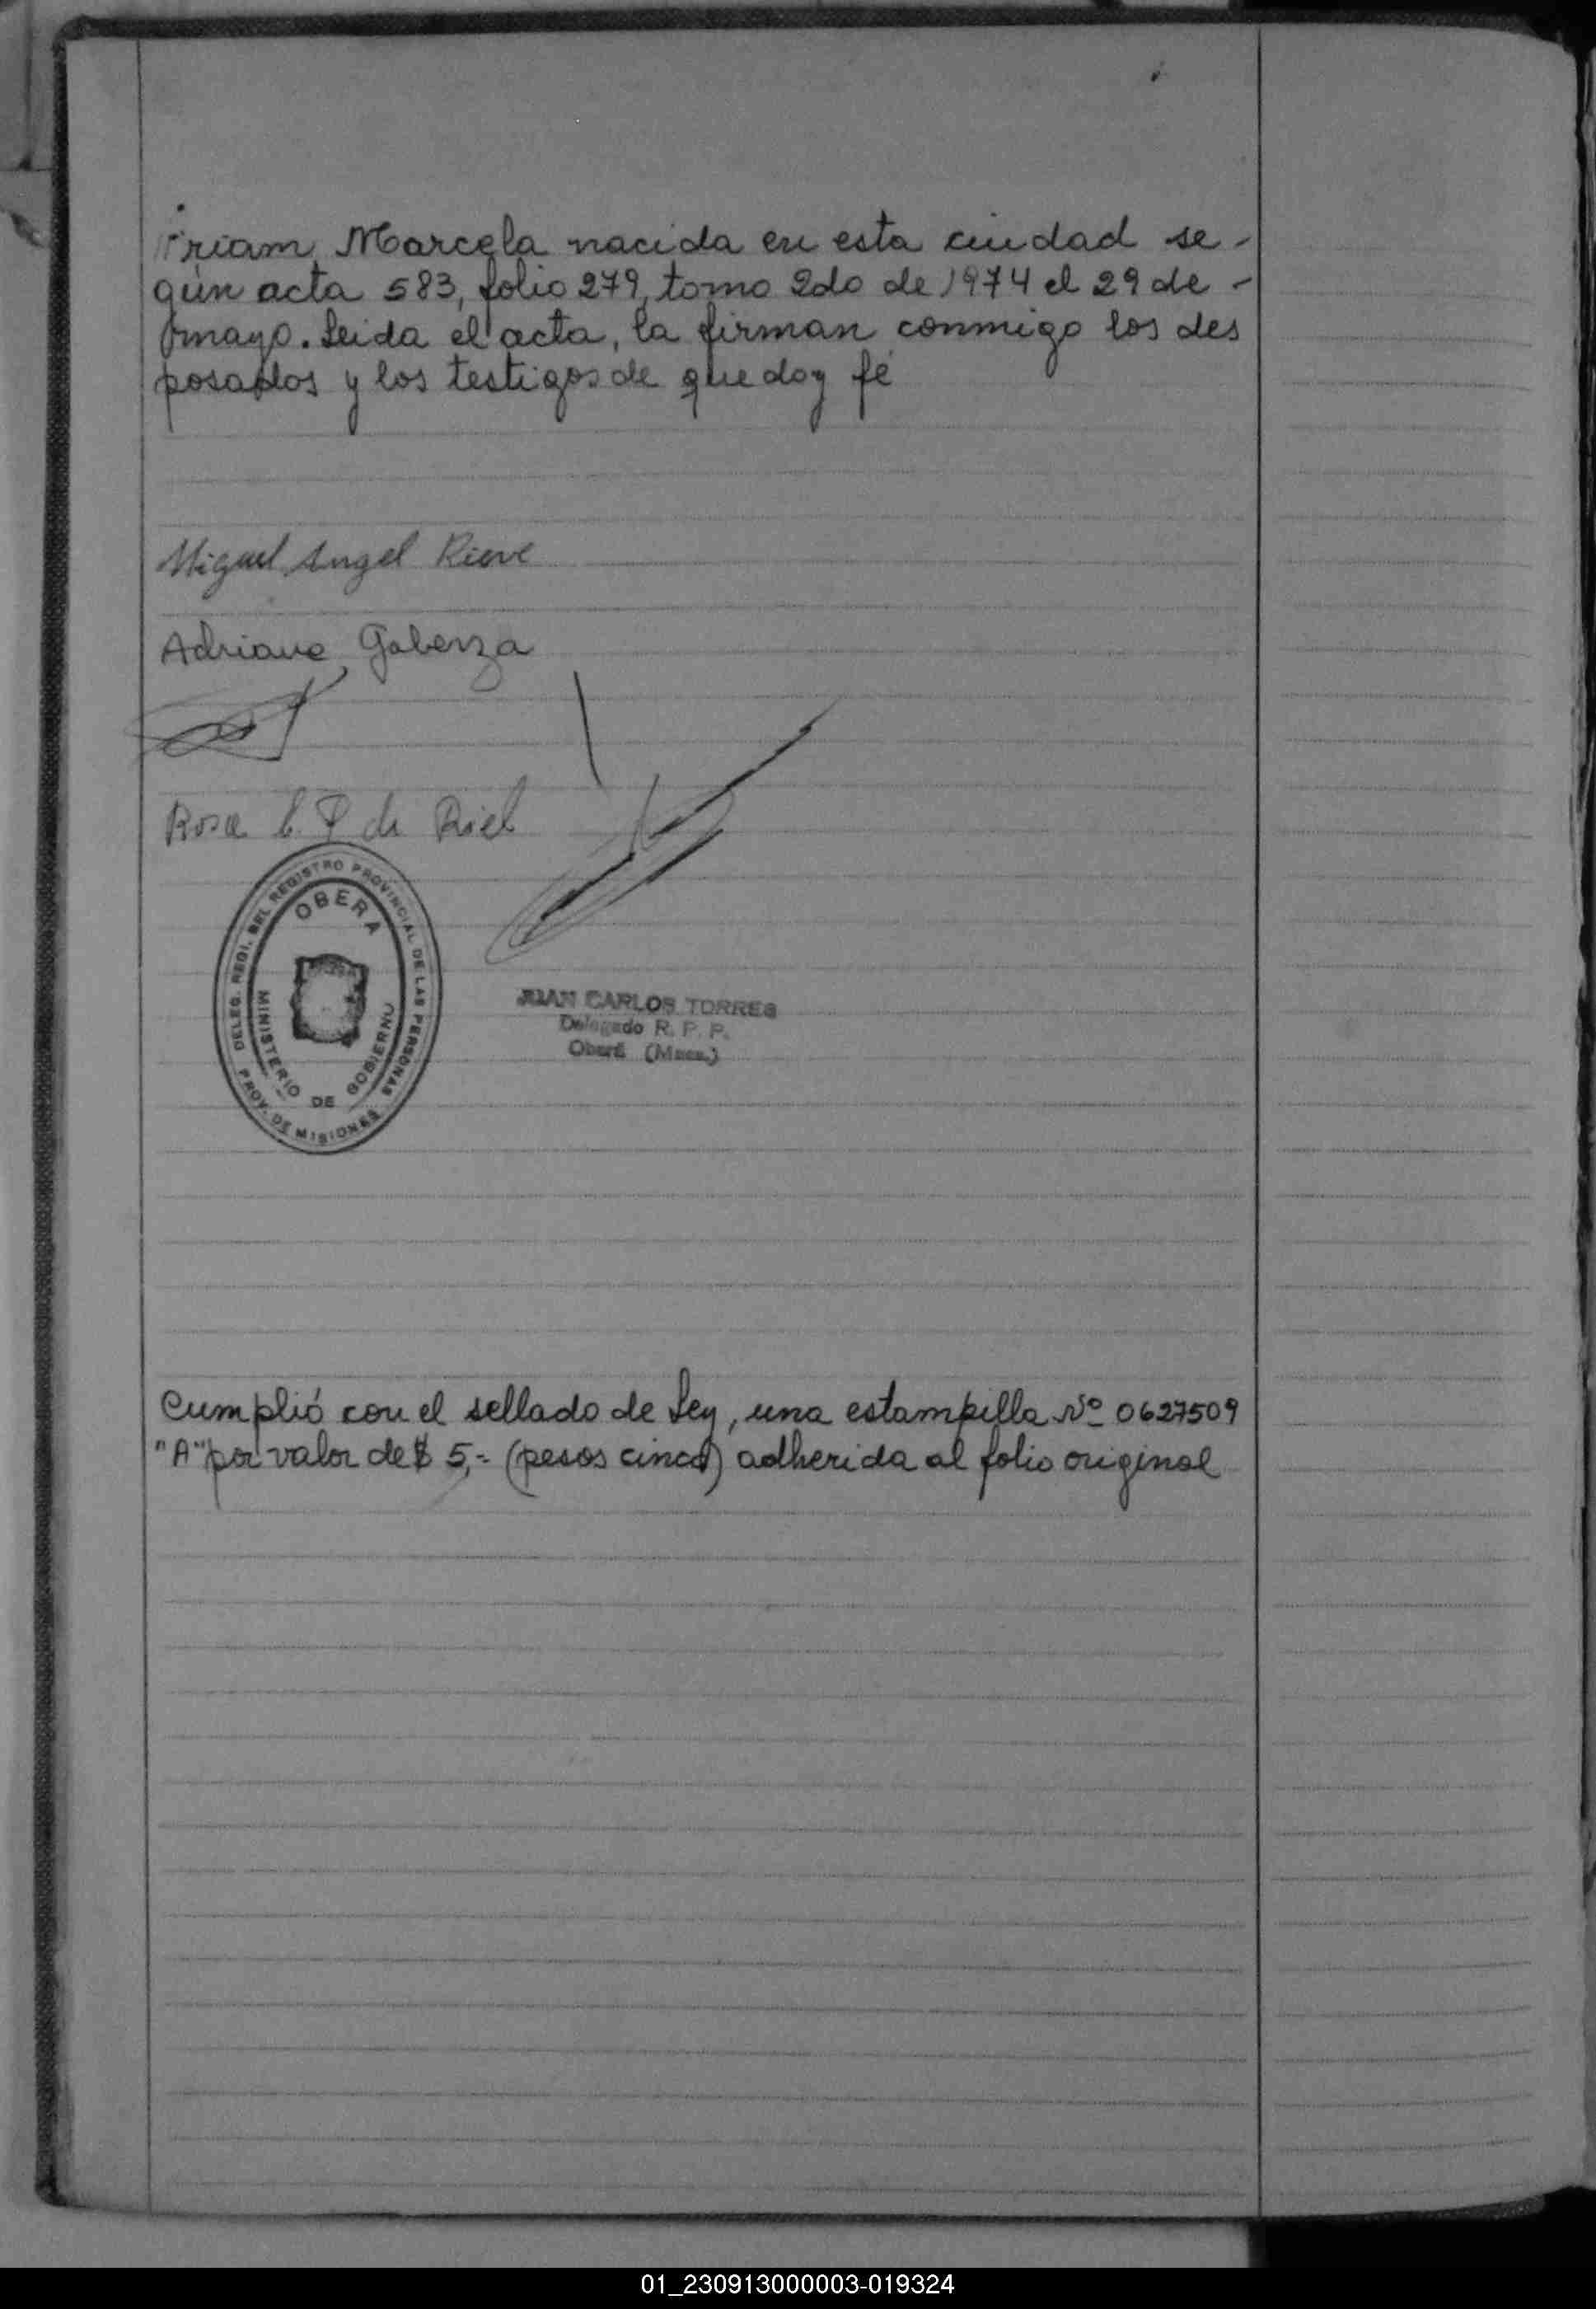 riam Marcela nacida en esta ciudad se-
gún acta 583, folio 279, tomo 2do de 1974 el 29 de -
mayo. Leida el acta, la firman conmigo los des
posados y los testigos de que doy fé
Miguel Angel
Adriana
Rosa de Riel
DELEG. REGI. DEL REGISTRO PROVINCIAL DE LAS PERSONAS
PROV. DE MISIONES
OBERA
MINISTERIO DE GOBIERNO
JUAN CARLOS TORRES
Delegado R. P. P.
Oberá (Mnes.)
Cumplió con el sellado de Ley, una estampilla Nº 0627509
"A" por valor de $ 5,- (pesos cinco) adherida al folio original
01_230913000003-019324